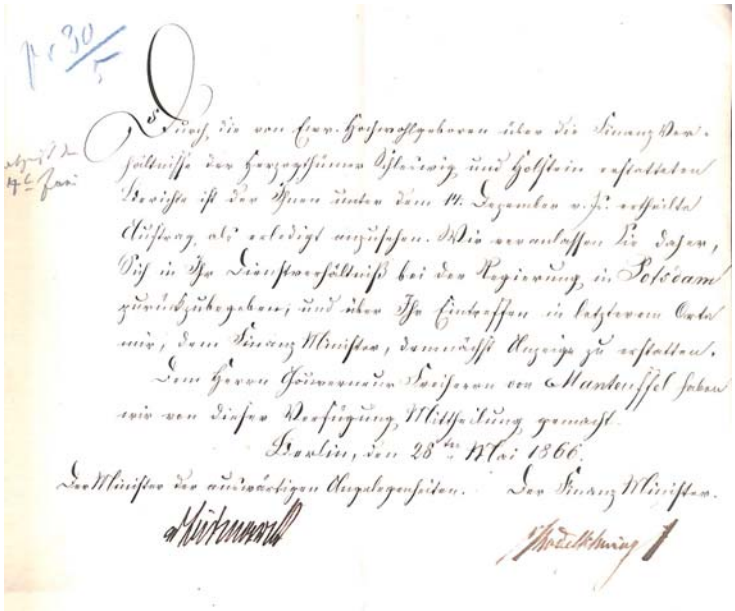 pr 30/5
Durch die von Euer Hochwohlgeboren über die Finanz Ver-
hältnisse der Herzogthümer Schleswig und Holstein erstatteten
Berichte ist der Ihnen unter dem 14. Dezember v. Js. ertheilte
Auftrag als erledigt anzusehen. Wir veranlassen Sie daher,
Sich in Ihr Dienstverhältniß bei der Regierung in Potsdam
zurückzubegeben, und über Ihr Eintreffen in letzterem Orte
mir, dem Finanz Minister, demnächst Anzeige zu erstatten.
Dem Herrn Gouverneur Freiherrn von Manteuffel haben
wir von dieser Verfügung Mittheilung gemacht.
Berlin, den 28ten Mai 1866.
Der Minister der auswärtigen Angelegenheiten. Der Finanz Minister.
v Bismarck
Bodelschwingh